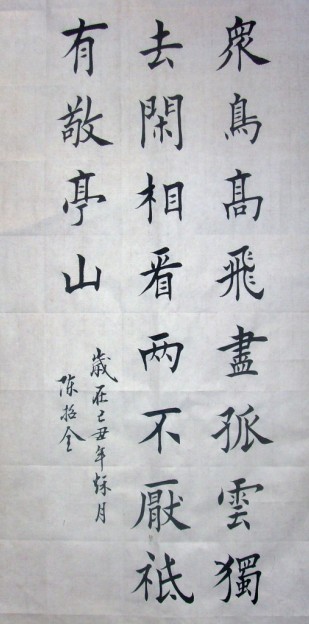 眾鳥高飛盡孤雲獨
去閑相看两不厭祗
有敬亭山
歲在己丑年秌月
陈招全